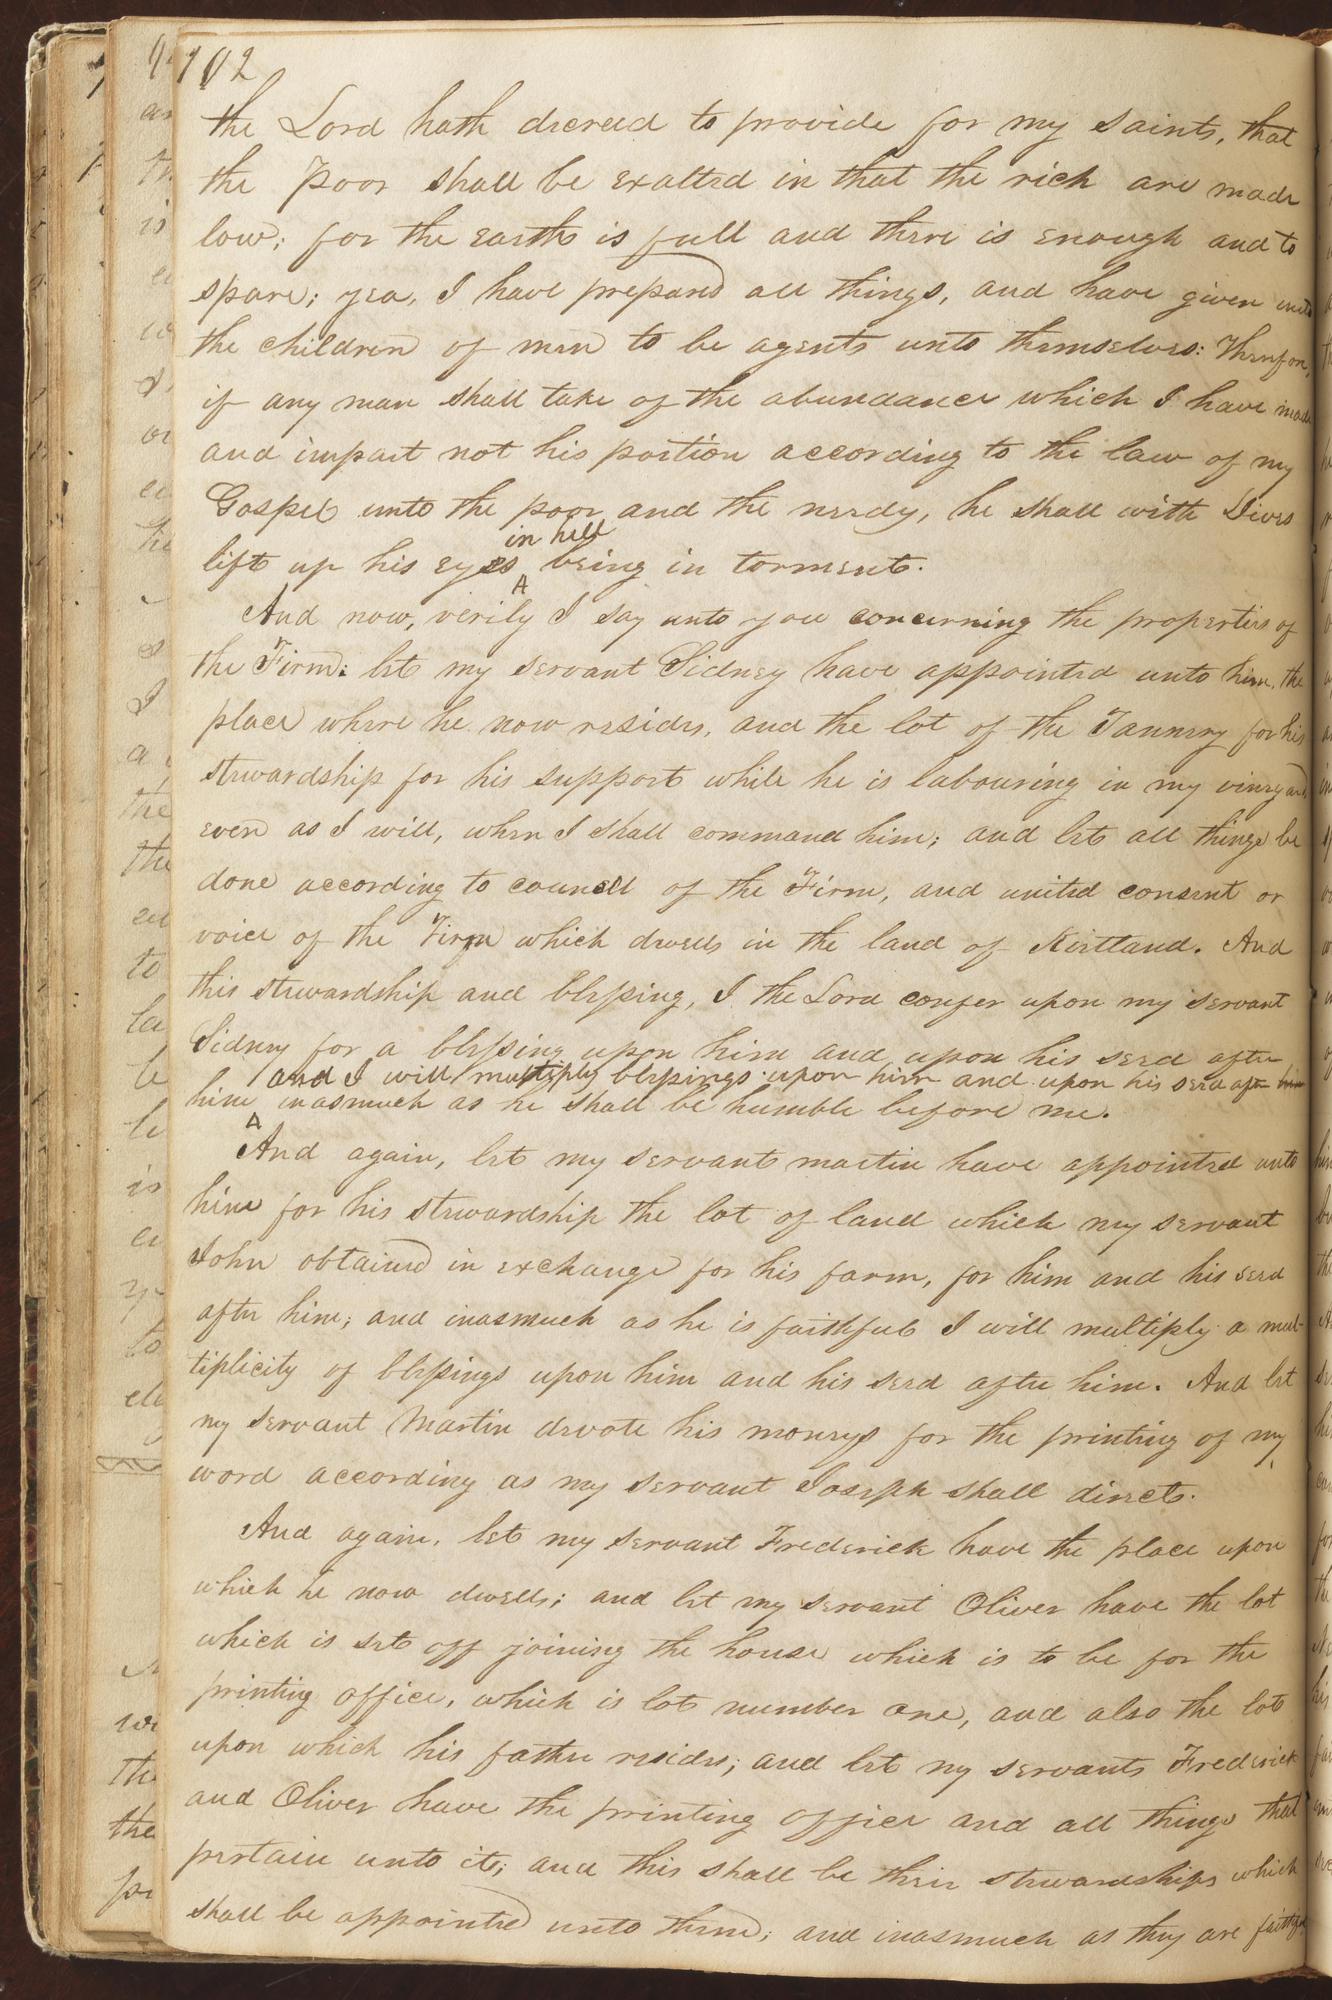 102
the Lord hath decreed to provide for my saints, that
the Poor shall be exalted in that the rich are made
low; for the earth is full and there is enough and to
spare; yea, I have prepared all things, and have given unto
the children of men to be agents unto themselves: Therefore,
if any man shall take of the abundance which I have made
and impart not his portion according to the law of my
Gospel unto the poor and the needy, he shall with Dives
in hell
lift up his eyes being in torment.
And now, verily I say unto you concerning the properties of
the Firm: let my servant Sidney have appointed unto him, the
place where he now resides, and the lot of the Tannery for his
stewardship for his support while he is labouring in my vineyard
even as I will, when I shall command him; and let all things be
done according to council of the Firm, and united consent or
voice of the Firm which dwells in the land of Kirtland. And
this stewardship and blessing, I the Lord confer upon my servant
Sidney for a blessing upon him and upon his seed after
and I will multiply blessings upon him and upon his seed after him
him inasmuch as he shall be humble before me.
And again, let my servant martin have appointed unto
him for his stewardship the lot of land which my servant
John obtained in exchange for his farm, for him and his seed
after him; and inasmuch as he is faithful I will multiply a mul-
tiplicity of blessings upon him and his seed after him. And let
my servant Martin devote his moneys for the printing of my
word according as my servant Joseph shall direct.
And again, let my servant Frederick have the place upon
which he now dwells; and let my servant Oliver have the lot
which is set off joining the house which is to be for the
printing office, which is lot number one, and also the lot
upon which his father resides; and let my servants Frederick
and Oliver have the printing office and all things that
pertain unto it; and this shall be their stewardships which
shall be appointed unto them; and inasmuch as they are faithful